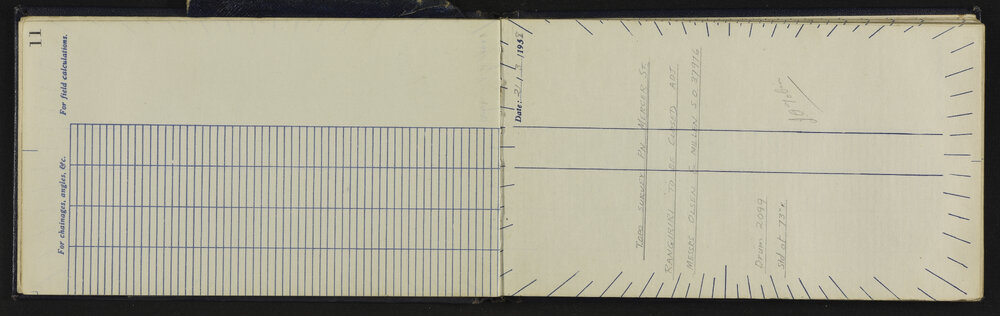 11
For field calculations.
For chainages, angles, &c.
Date: 21 1958
TOPO SURVEY PN MERCER ST.
RANGIRIRI TO BE CLOSED ADJ.
MESSRS OLSON & NILSON S.O. 37976
Drum 2099
Std at 73°